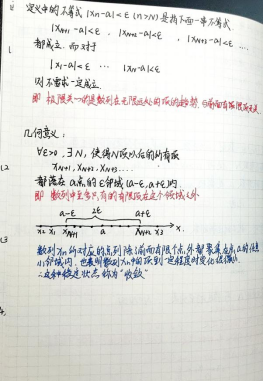 定义中的不等式 |xn-a|<ε (n>N) 是指下面一串不等式.
|xN+1 -a|<ε . |xN+2 -a|<ε , |xN+3 -a|<ε ....
都成立. 而对于
|x1-a|<ε ... |xN-a|<ε
则不要求一定成立.
即 极限关心的是数列在无限远处的取值趋势. 与前面有限项无关.
几何意义:
∀ε>0, ∃N, 使得N项以后的所有项
xN+1, xN+2, xN+3, ....
都落在 a点的ε邻域 (a-ε, a+ε)内.
即 数列中至多只有有限项在这个邻域之外.
a-ε 2ε a+ε
x2 x1 xN+1 a xN+2 x3 x.
数列xn所对应的点列除前面有限个点外都聚集在点a的
小邻域内. 也表明数列xn中的项到一定程度时变化很微小
∴这种稳定状态称为"收敛"
L2
L3